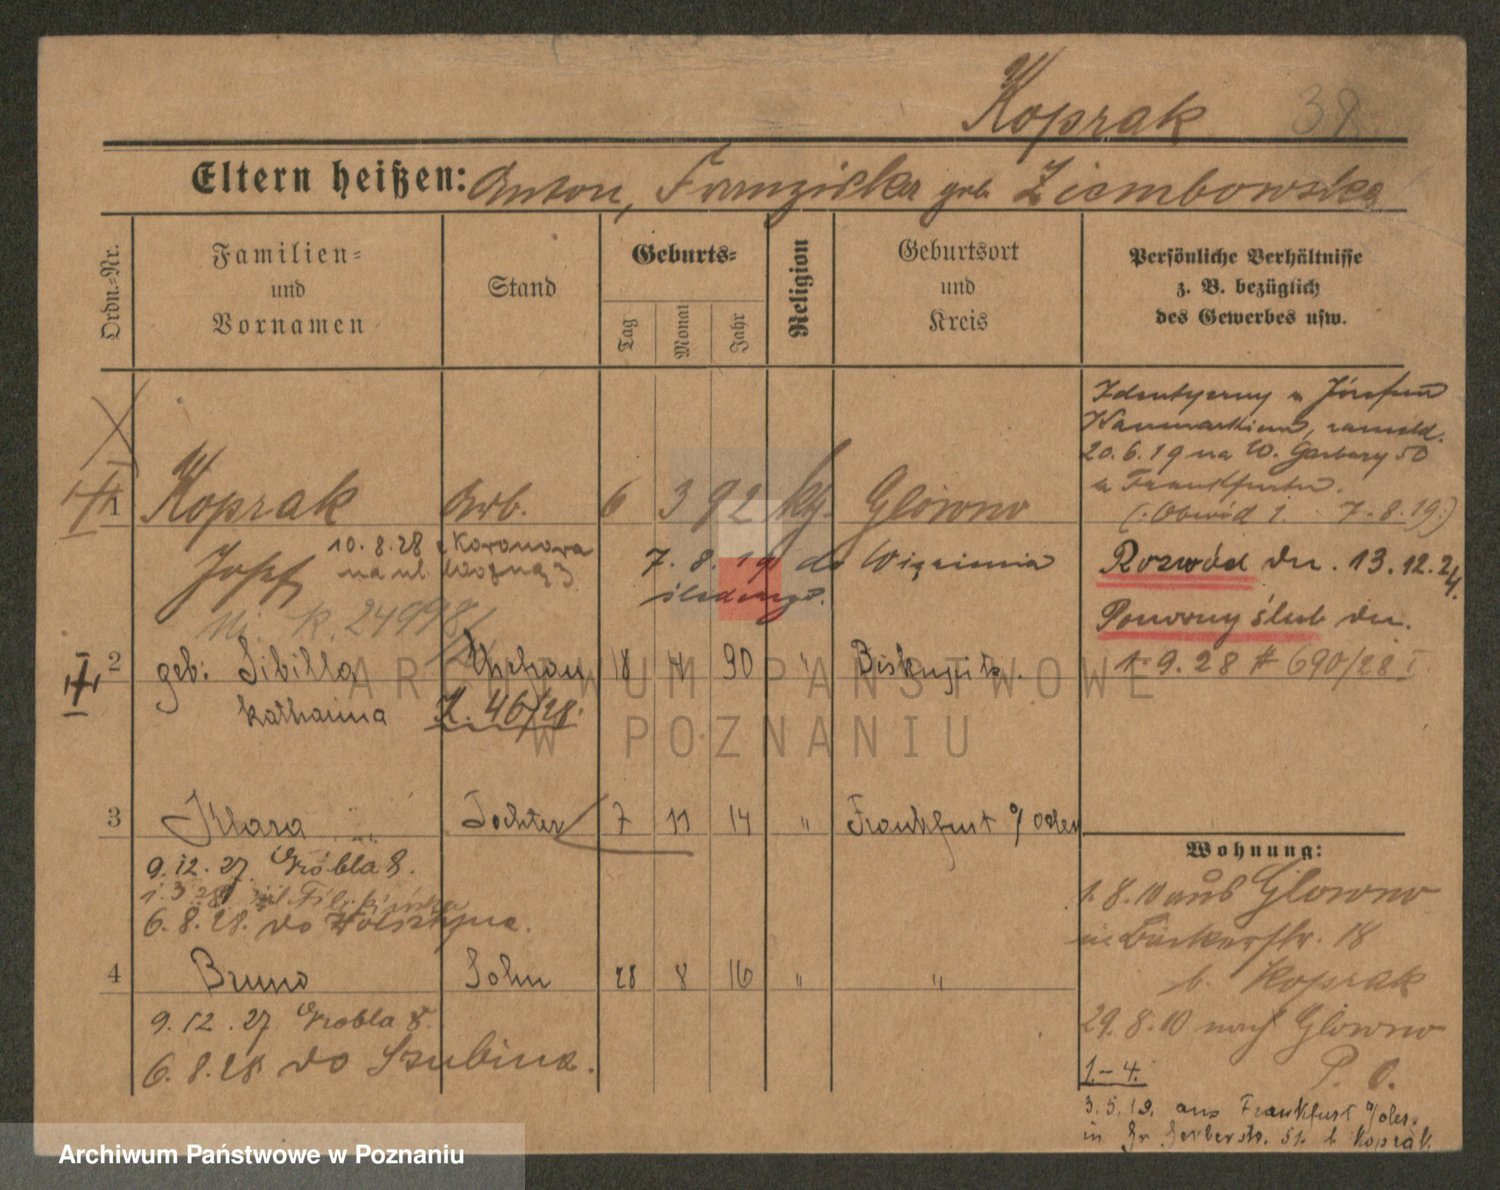 Koprak 38
Eltern heißen: Anton, Franziska geb. Ziembowska
Ordn.-Nr.
Familien-
und
Vornamen
Stand
Geburts-
Tag
Monat
Jahr
Religion
Geburtsort
und
Kreis
Persönliche Verhältnisse
z. B. bezüglich
des Gewerbes usw.
Identyczny z Józefem
20.6.19 na W. Garbary 50
z Frankfurtu.
(: Obwód 1. 7.8.19 :)
1 Koprak Arb. 6 3 92 kg. Glowno
Josef 10.8.28 z Koronowa
na ul. Woźną 3
7.8.19 do Więzienia
śledczego.
Rozwód dn. 13.12.24.
Ponowny ślub dn.
1.9.28 # 690/28 I
K. 24998/
2 geb: Sibilla 18 90 " Biskupitz.
Katharina Z. 46/28.
3 Klara Tochter 7 11 14 " Frankfurt a/Oder
9.12.27 Grobla 8.
1.3.28 ul.
6.8.28. do Wolsztyna.
4 Bruno Sohn 28 8 16 " "
9.12.27 Grobla 8.
6.8.28 do Szubina.
Wohnung:
1.8.10 aus Glowno
in Bäckerstr. 18
b. Koprak
29.8.10 nach Glowno
P. O.
1-4.
3.5.19. aus Frankfurt a/Oder.
in Gr Gerberstr. 51 b Koprak
ARCHIWUM PAŃSTWOWE
W POZNANIU
Archiwum Państwowe w Poznaniu